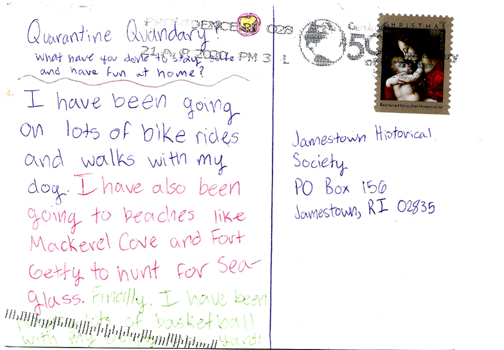 Quarantine Quandary!
What have you done to stay safe
and have fun at home?
I have been going
on lots of bike rides
and walks with my
dog. I have also been
going to beaches like
Mackerel Cove and Fort
Getty to hunt for sea-
glass. Finally, I have been
lots of basketball
with my
PROVIDENCE RI 028
21 APR 2020 PM 3 L
CHRISTMAS
Jamestown Historical
Society
PO Box 156
Jamestown, RI 02835